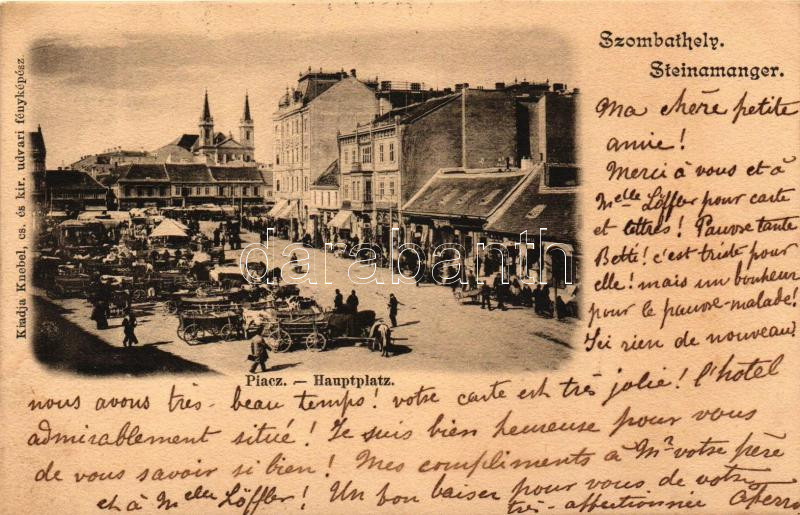 Szombathely.
Steinamanger.
Kiadja Knebel, cs. és kir. udvari fényképész.
Piacz. — Hauptplatz.
darabanth
Ma chère petite
amie!
Merci à vous et à
Melle Löffler pour carte
et lettres! Pauvre tante
Betti! c'est triste pour
elle! mais un bonheur
pour le pauvre malade!
Ici rien de nouveau!
nous avons très-beau temps! votre carte est très jolie! l'hôtel
admirablement situé! Je suis bien heureuse pour vous
de vous savoir si bien! Mes compliments à Mr votre père
et à Melle Löffler! Un bon baiser pour vous de votre
très-affectionnée